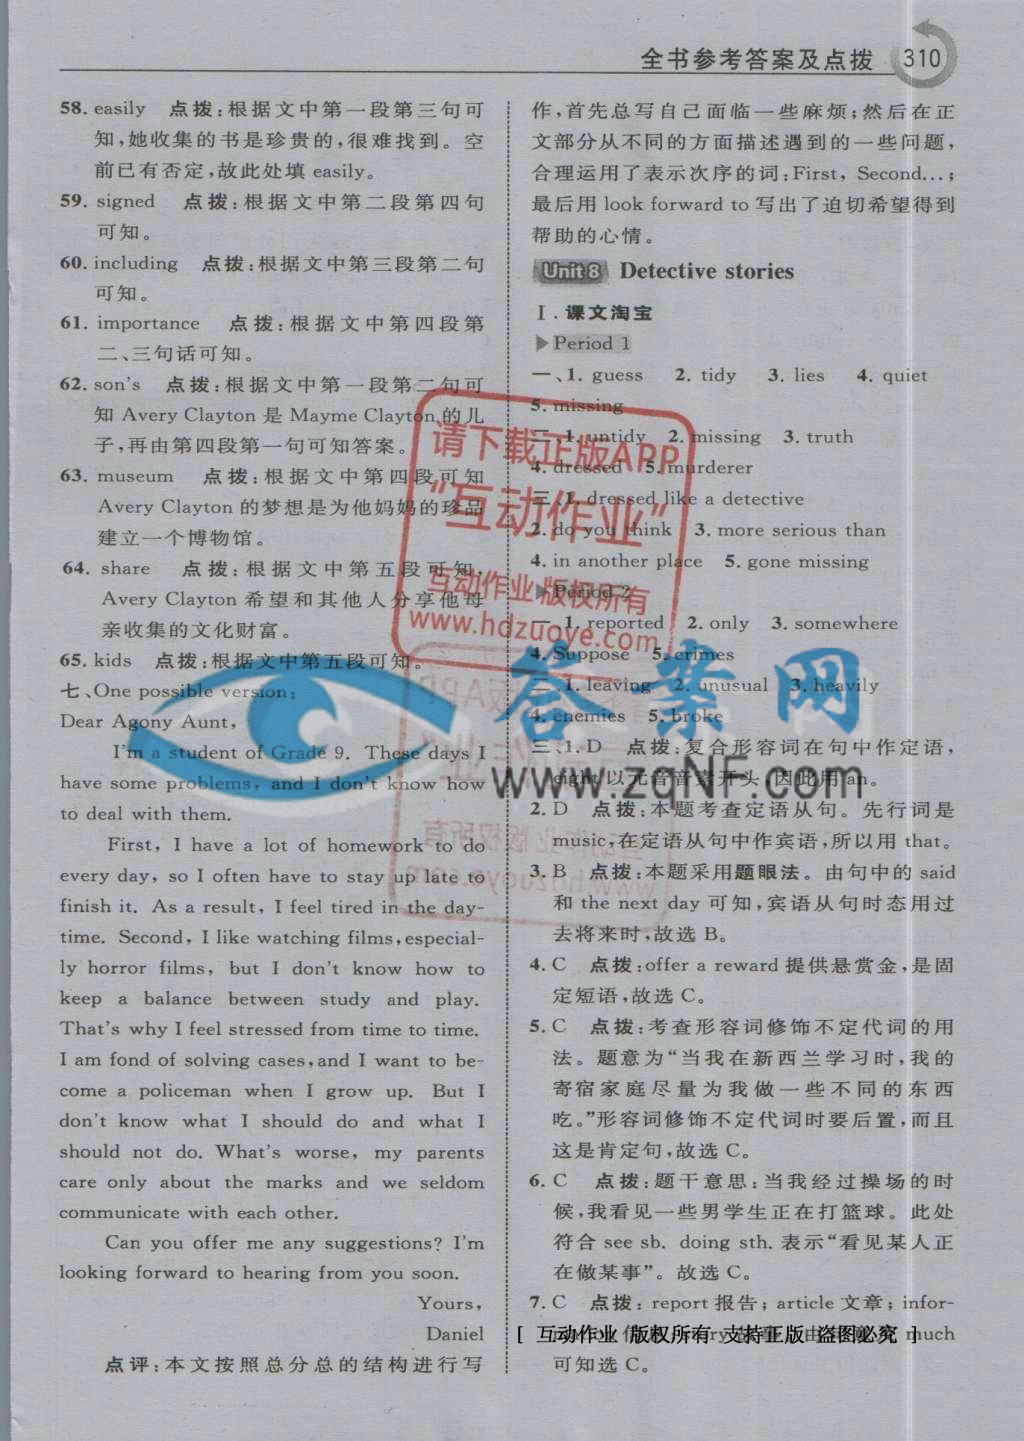 全书参考答案及点拨 310
58. easily 点拨:根据文中第一段第三句可
知,她收集的书是珍贵的,很难找到。空
前已有否定,故此处填 easily。
59. signed 点拨:根据文中第二段第四句
可知。
60. including 点拨:根据文中第三段第二句
可知。
61. importance 点拨:根据文中第四段第
二、三句话可知。
62. son's 点拨:根据文中第一段第二句可
知 Avery Clayton 是 Mayme Clayton 的儿
子,再由第四段第一句可知答案。
63. museum 点拨:根据文中第四段可知
Avery Clayton 的梦想是为他妈妈的珍品
建立一个博物馆。
64. share 点拨:根据文中第五段可知,
Avery Clayton 希望和其他人分享他母
亲收集的文化财富。
65. kids 点拨:根据文中第五段可知。
七、One possible version:
Dear Agony Aunt,
I'm a student of Grade 9. These days I
have some problems, and I don't know how
to deal with them.
First, I have a lot of homework to do
every day, so I often have to stay up late to
finish it. As a result, I feel tired in the day-
time. Second, I like watching films, especial-
ly horror films, but I don't know how to
keep a balance between study and play.
That's why I feel stressed from time to time.
I am fond of solving cases, and I want to be-
come a policeman when I grow up. But I
don't know what I should do and what I
should not do. What's worse, my parents
care only about the marks and we seldom
communicate with each other.
Can you offer me any suggestions? I'm
looking forward to hearing from you soon.
Yours,
Daniel
点评:本文按照总分总的结构进行写
作,首先总写自己面临一些麻烦;然后在正
文部分从不同的方面描述遇到的一些问题,
合理运用了表示次序的词:First, Second…;
最后用 look forward to 写出了迫切希望得到
帮助的心情。
Unit 8 Detective stories
Ⅰ.课文淘宝
Period 1
一、1. guess 2. tidy 3. lies 4. quiet
5. missing
二、1. untidy 2. missing 3. truth
4. dressed 5. murderer
三、1. dressed like a detective
2. do you think 3. more serious than
4. in another place 5. gone missing
Period 2
一、1. reported 2. only 3. somewhere
4. Suppose 5. crimes
二、1. leaving 2. unusual 3. heavily
4. enemies 5. broke
三、1. D 点拨:复合形容词在句中作定语,
eight 以元音音素开头,因此用 an。
2. D 点拨:本题考查定语从句。先行词是
music,在定语从句中作宾语,所以用 that。
3. B 点拨:本题采用题眼法。由句中的 said
和 the next day 可知,宾语从句时态用过
去将来时,故选 B。
4. C 点拨:offer a reward 提供悬赏金,是固
定短语,故选 C。
5. C 点拨:考查形容词修饰不定代词的用
法。题意为“当我在新西兰学习时,我的
寄宿家庭尽量为我做一些不同的东西
吃。”形容词修饰不定代词时要后置,而且
这是肯定句,故选 C。
6. C 点拨:题干意思:当我经过操场的时
候,我看见一些男学生正在打篮球。此处
符合 see sb. doing sth. 表示“看见某人正
在做某事”。故选 C。
7. C 点拨: report 报告; article 文章; infor-
much
可知选 C。
请下载正版APP
“互动作业”
互动作业 版权所有
www.hdzuoye.com
答案网
www.zqNF.com
[ 互动作业 版权所有 支持正版 盗图必究 ]